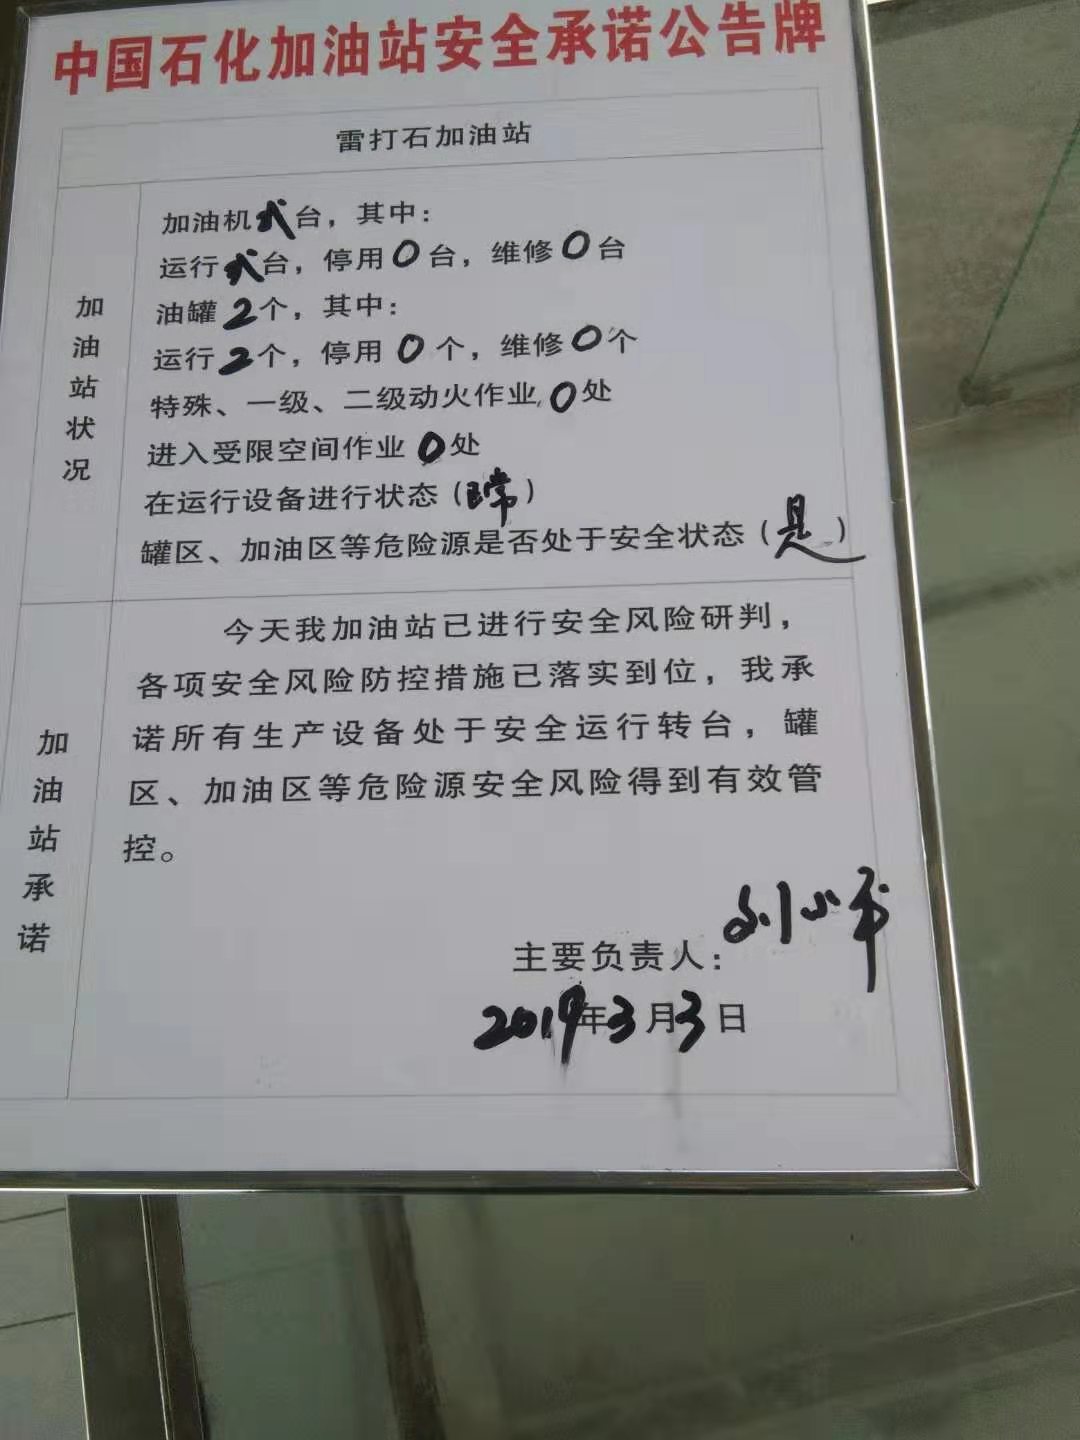 中国石化加油站安全承诺公告牌
雷打石加油站
加油站状况
加油机弍台，其中：
运行弍台，停用0台，维修0台
油罐2个，其中：
运行2个，停用0个，维修0个
特殊、一级、二级动火作业0处
进入受限空间作业0处
在运行设备进行状态（正常）
罐区、加油区等危险源是否处于安全状态（是）
加油站承诺
今天我加油站已进行安全风险研判，
各项安全风险防控措施已落实到位，我承
诺所有生产设备处于安全运行转台，罐
区、加油区等危险源安全风险得到有效管
控。
主要负责人：刘小平
2019年3月3日